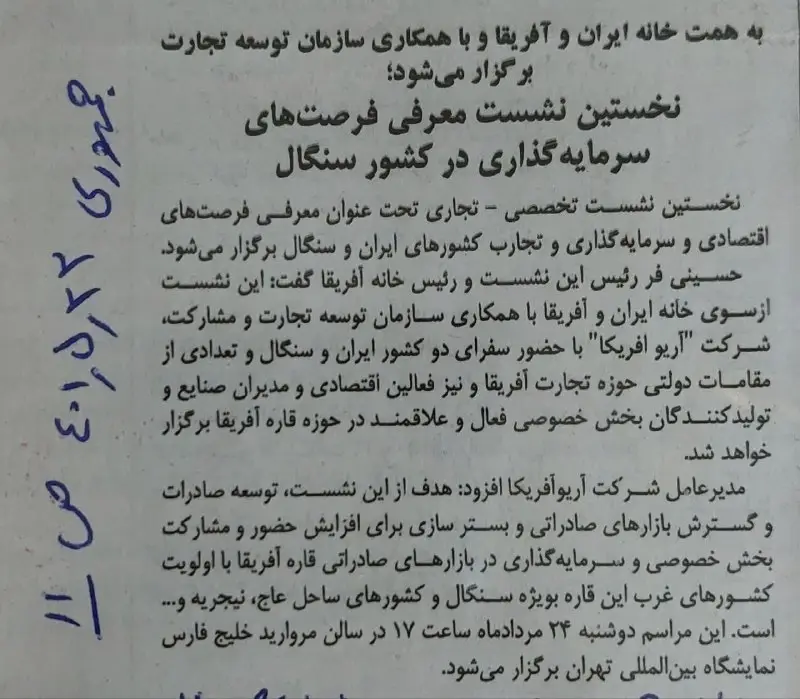 به همت خانه ایران و آفریقا و با همکاری سازمان توسعه تجارت
برگزار می‌شود؛
نخستین نشست معرفی فرصت‌های
سرمایه‌گذاری در کشور سنگال
نخستین نشست تخصصی - تجاری تحت عنوان معرفی فرصت‌های
اقتصادی و سرمایه‌گذاری و تجارب کشورهای ایران و سنگال برگزار می‌شود.
حسینی فر رئیس این نشست و رئیس خانه آفریقا گفت: این نشست
ازسوی خانه ایران و آفریقا با همکاری سازمان توسعه تجارت و مشارکت،
شرکت "آریو افریکا" با حضور سفرای دو کشور ایران و سنگال و تعدادی از
مقامات دولتی حوزه تجارت آفریقا و نیز فعالین اقتصادی و مدیران صنایع و
تولیدکنندگان بخش خصوصی فعال و علاقمند در حوزه قاره آفریقا برگزار
خواهد شد.
مدیرعامل شرکت آریوآفریکا افزود: هدف از این نشست، توسعه صادرات
و گسترش بازارهای صادراتی و بستر سازی برای افزایش حضور و مشارکت
بخش خصوصی و سرمایه‌گذاری در بازارهای صادراتی قاره آفریقا با اولویت
کشورهای غرب این قاره بویژه سنگال و کشورهای ساحل عاج، نیجریه و...
است. این مراسم دوشنبه ۲۴ مردادماه ساعت ۱۷ در سالن مروارید خلیج فارس
نمایشگاه بین‌المللی تهران برگزار می‌شود.
جمهوری ۴۰۱٫۵٫۲۲ ص ۱۱